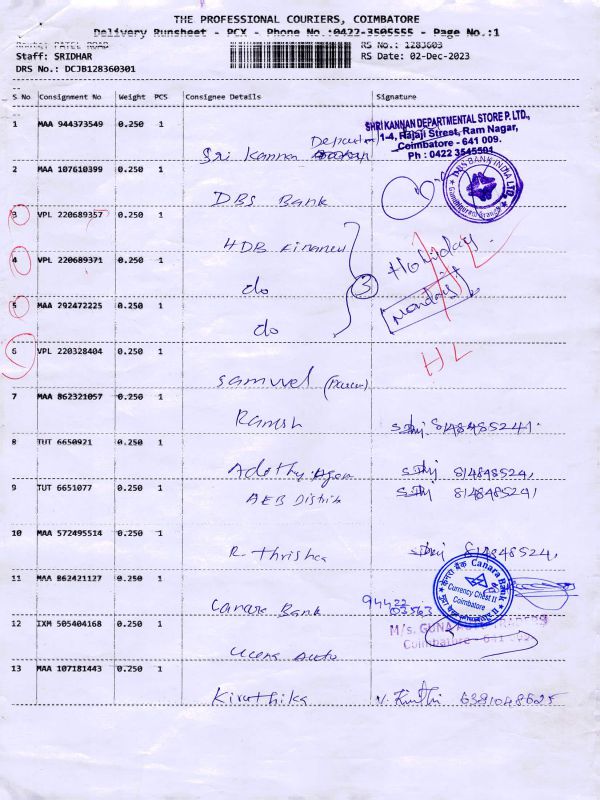 THE PROFESSIONAL COURIERS, COIMBATORE
Delivery Runsheet - PCX - Phone No.:0422-3505555 - Page No.:1
Route: PATEL ROAD
RS No.: 1283603
Staff: SRIDHAR
RS Date: 02-Dec-2023
DRS No.: DCJB128360301
S No Consignment No Weight PCS Consignee Details Signature
1 MAA 944373549 0.250 1
Sri Kannan Department
SHRI KANNAN DEPARTMENTAL STORE P. LTD.,
1-4, Rajaji Street, Ram Nagar,
Coimbatore - 641 009.
Ph : 0422 3545501
2 MAA 107610399 0.250 1
DBS Bank
DBS BANK INDIA LTD.
Gandhipuram Branch
3 VPL 220689357 0.250 1
HDB Finance
4 VPL 220689371 0.250 1
do
3
Holiday
Monday
5 MAA 292472225 0.250 1
do
6 VPL 220328404 0.250 1
HL
Samuvel
7 MAA 862321057 0.250 1
Ramesh 8148485241
8 TUT 6650921 0.250 1
814848524,
9 TUT 6651077 0.250 1
AEB Distrib 8148485241
10 MAA 572495514 0.250 1
R. Thrisha 814848524,
11 MAA 862421127 0.250 1
Canara Bank
केनरा बैंक Canara Bank
Currency Chest II
Coimbatore
94422
07563
12 IXM 505404168 0.250 1
M/s. GUNA
Coimbatore - 641
Auto
13 MAA 107181443 0.250 1
Kiruthika 6391048625